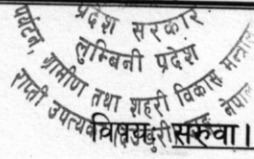 प्रदेश सरकार
लुम्बिनी प्रदेश
पर्यटन, ग्रामीण तथा शहरी विकास मन्त्रालय
राप्ती उपत्यका नेपाल
विषय: सरुवा।